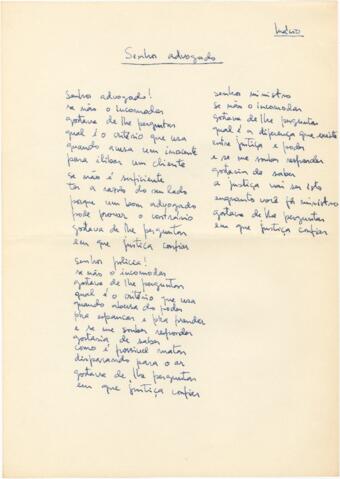 Inédito
Senhor advogado
senhor advogado!
se não o incomodar
gostava de lhe perguntar
qual é o critério que usa
quando acusa um inocente
para ilibar um cliente
se não é suficiente
ter a razão do seu lado
porque um bom advogado
pode provar o contrário
gostava de lhe perguntar
em que justiça confiar
senhor polícia!
se não o incomodar
gostava de lhe perguntar
qual é o critério que usa
quando abusa do poder
pra espancar e pra prender
e se me souber responder
gostaria de saber
como é possível matar
disparando para o ar
gostava de lhe perguntar
em que justiça confiar
senhor ministro
se não o incomodar
gostava de lhe perguntar
qual é a diferença que existe
entre justiça e poder
e se me souber responder
gostaria de saber
a justiça vai ser isto
enquanto você for ministro
gostava de lhe perguntar
em que justiça confiar